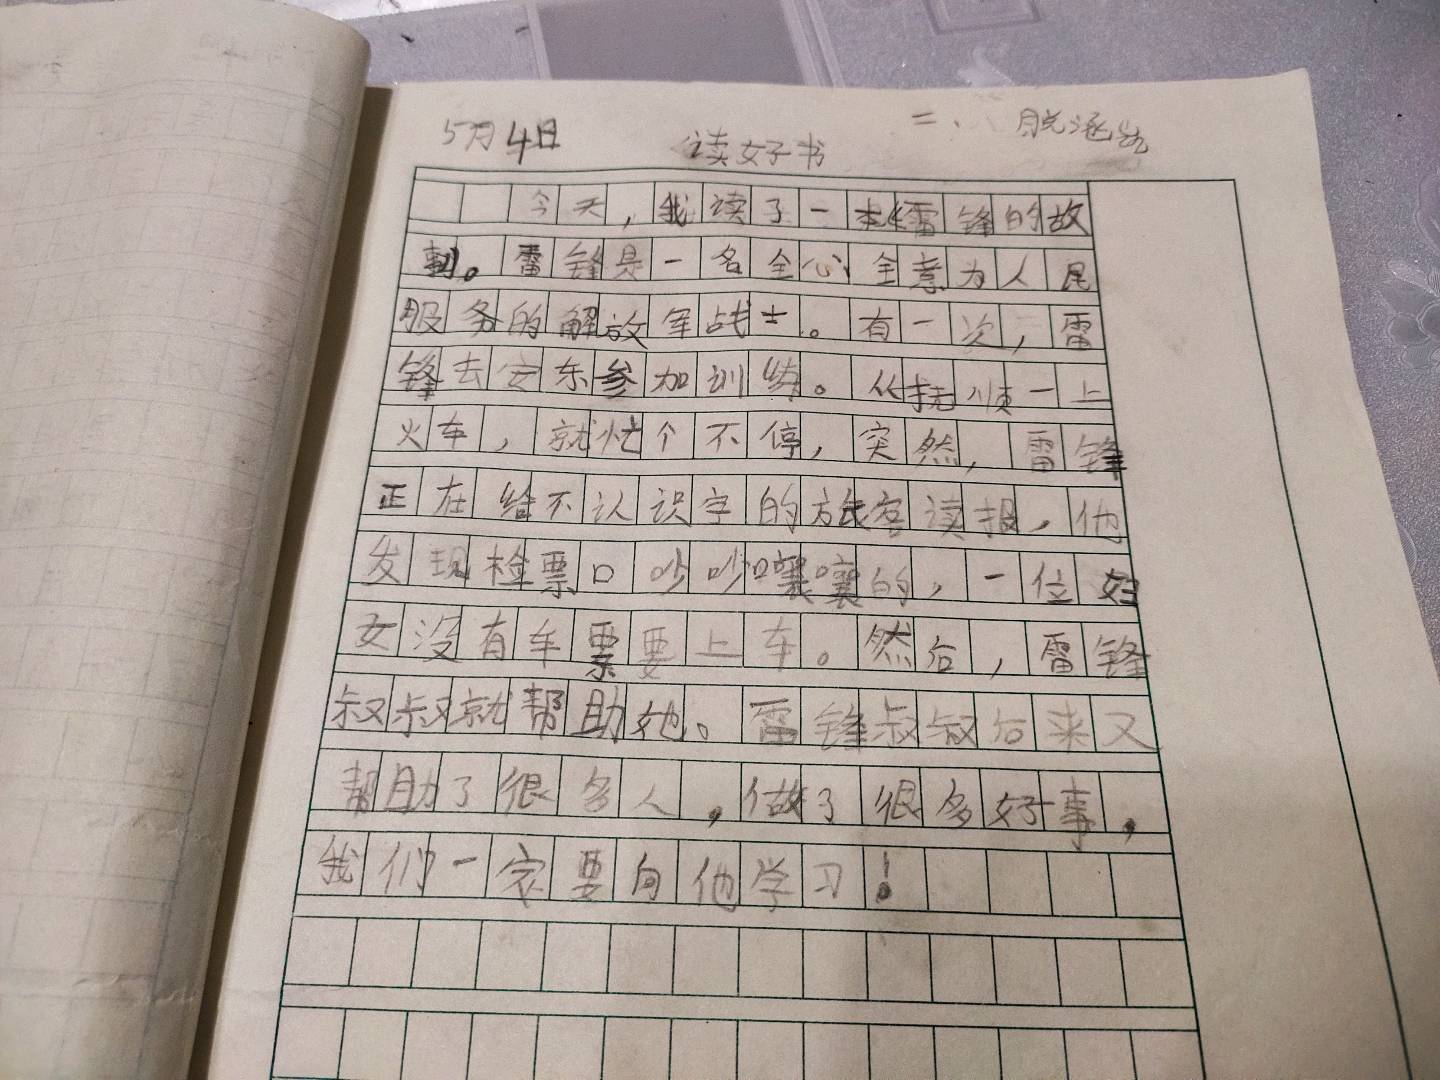 5月4日 读好书 二、 脱涵
今天,我读了一本雷锋的故
事。雷锋是一名全心全意为人民
服务的解放军战士。有一次,雷
锋去安东参加训练。从抚顺一上
火车,就忙个不停,突然,雷锋
正在给不认识字的旅客读报,他
发现检票口吵吵嚷嚷的,一位妇
女没有车票要上车。然后,雷锋
叔叔就帮助她。雷锋叔叔后来又
帮助了很多人,做了很多好事,
我们一定要向他学习!